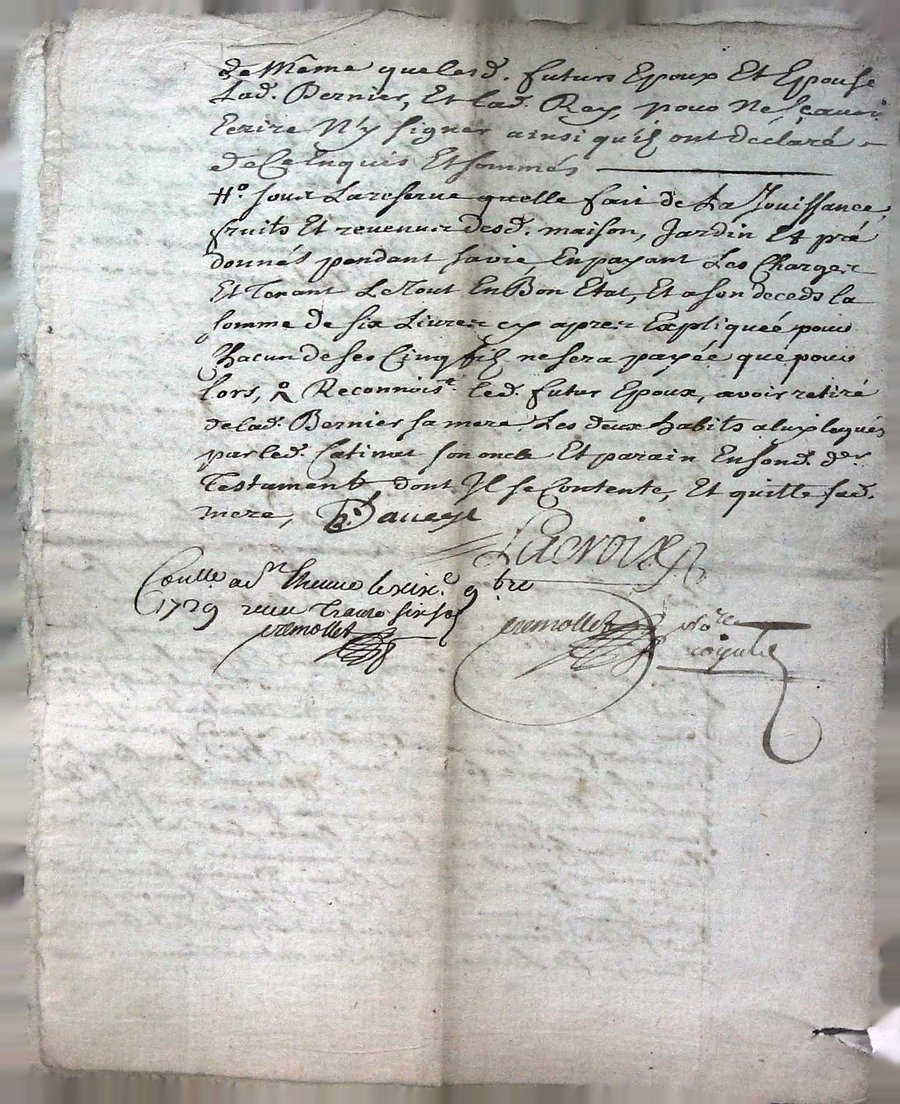 de Même que lesd. futurs Epoux Et Epouse
Lad. Bernier, Et lad. Rey, pour Ne Scavoir
Ecrire N'y signer ainsi qu'ils ont déclaré
de Ce Enquis Et sommés
#o sous La reserve quelle fait de La Jouissance,
fruits Et revenus desd. maison, Jardin Et pré
donnés pendant sa vie En payant Les Charges
Et Tenant Le Tout En Bon Etat, Et a son deceds la
somme de six Livres cy apres Expliqueé pour
Chacun de ses Cinq fils ne sera payée que pour
lors, Reconnoist. led. futur Epoux, avoir retiré
de lad. Bernier sa mere Les deux habits a luy legués
par led. Catinat son oncle Et parain En sond. der
Testament dont Il se Contente, Et quitte sad.
mere,
Lacroix
Conlle a St. le six. 9bre
1729 receu Trante six sols
cremollet
cremollet no.re
royal